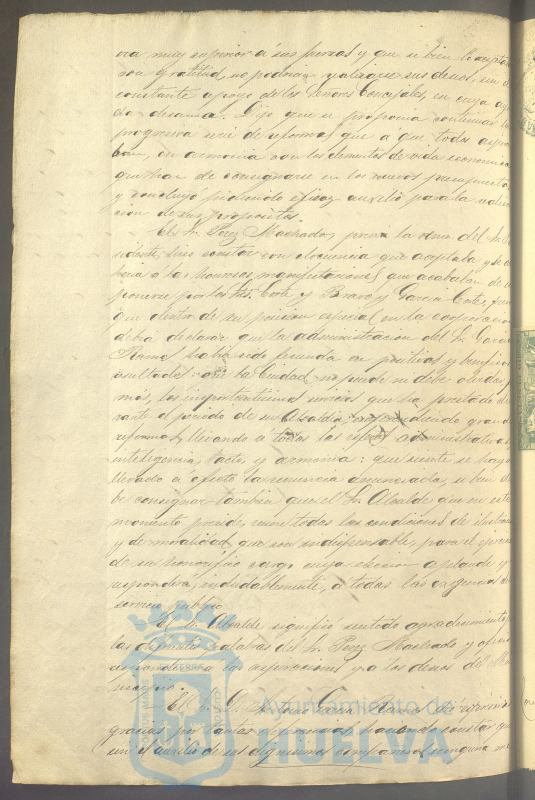 era muy superior á sus fuerzas y que si bien lo acepta
con gratitud, no podrian realizarse sus deseos, sin el
constante apoyo de los Señores Concejales, en cuya ayu
da descansa. Dijo que se proponia continuar la
progresiva serie de reformas que a que todos aspira
ban, en armonia con los elementos de vida economica
que han de consignarse en los nuevos presupuestos
y concluyó pidiendo eficaz auxilio para la realiza
cion de sus propositos.
El Sr. Perez Machado, previa la venia del Sr. Pre
sidente, hizo constar con elocuencia que aceptaba y se
á las honrosas manifestaciones que acababan de
ponerse por los Sres. Corte y Bravo y Garcia Cortes,
que dentro de su posicion especial en la corporacion
debia declarar que la administracion del Sr. Garcia
Ramos habia sido fecunda en positivos y beneficiosos
resultados: que la Ciudad no puede ni debe olvidar
mas, los importantisimos servicios que ha prestado du
rante el periodo de su Alcaldia, introduciendo grandes
reformas, llevando á todas las esferas administrativas
inteligencia, tacto y armonia: que siente se haya
llevado a efecto la renuncia anunciada, si bien de
be consignar tambien que el Sr. Alcalde que en este
momento preside, reune todas las condiciones de
y de moralidad que son indispensables, para el ejercicio
de su honorifico cargo cuya eleccion aplaude y
respondera, indudablemente, á todas las exigencias del
servicio publico.
El Sr. Alcalde significó su todo agradecimiento
las palabras del Sr. Perez Machado y ofreció
á las aspiraciones y a los deseos del
El Sr. Garcia Ramos dio
gracias por tantas deferencias, haciendo constar que
sin el auxilio de sus dignisimos compañeros, ninguna
Ayuntamiento de
HUELVA